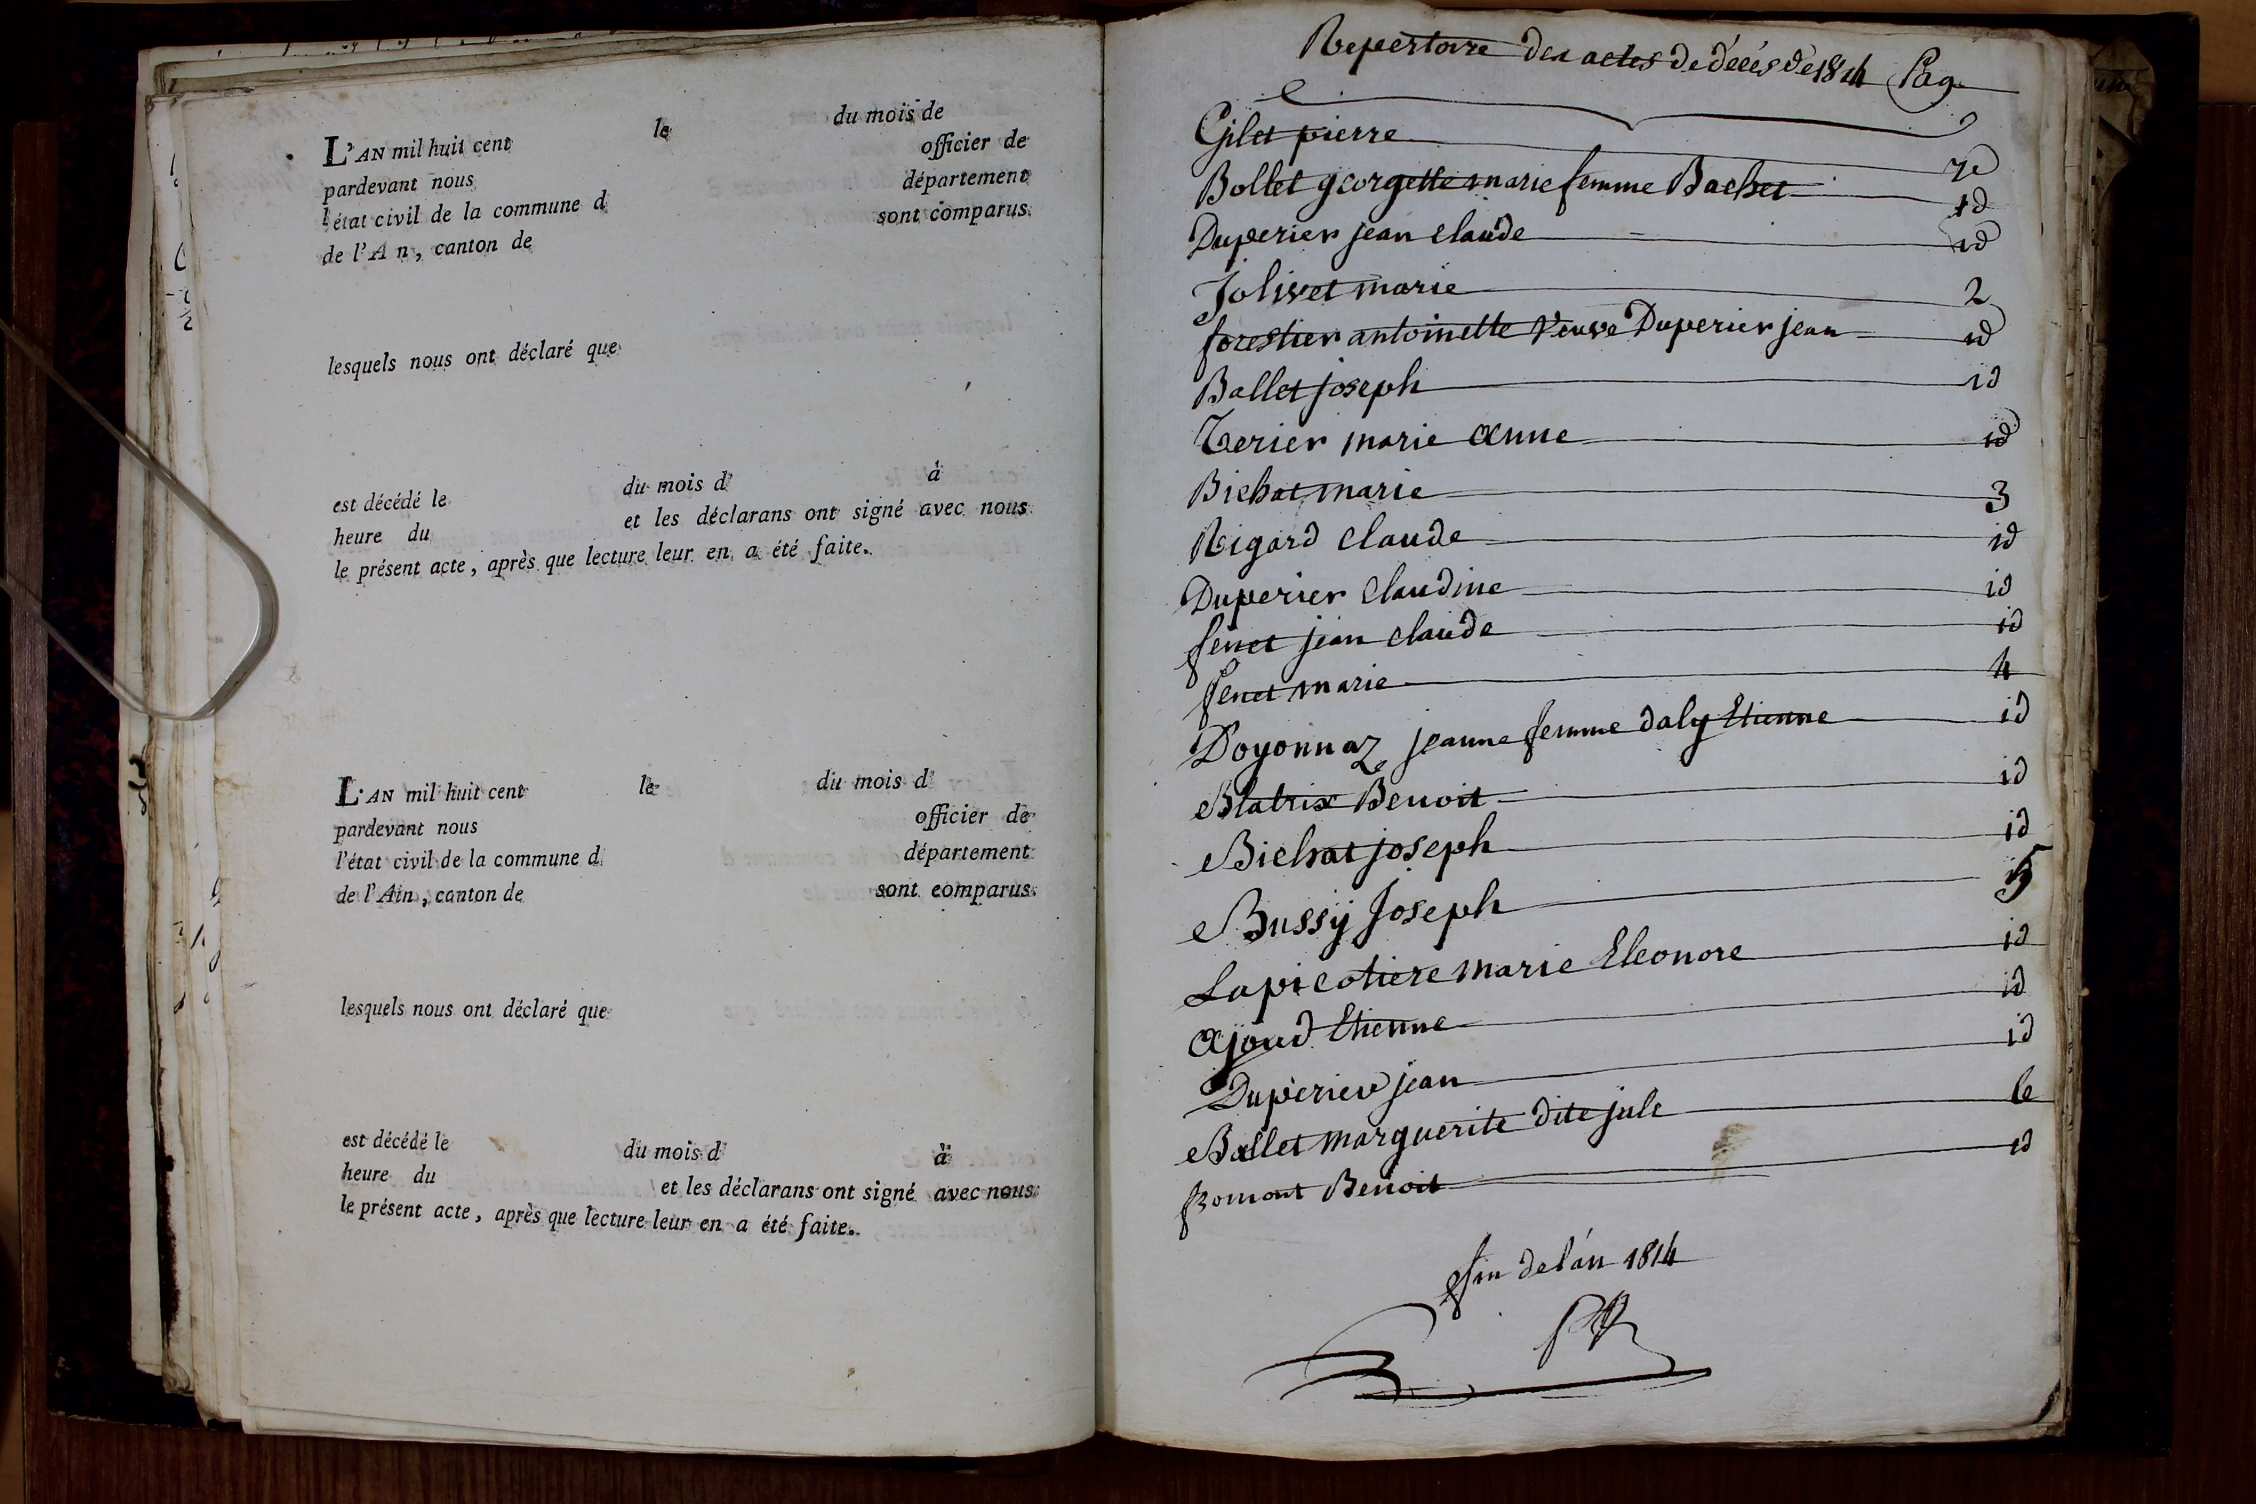 L'AN mil huit cent le du mois de
pardevant nous officier de
l'état civil de la commune d département
de l'A n, canton de sont comparus
lesquels nous ont déclaré que
est décédé le du mois d à
heure du et les déclarans ont signé avec nous
le présent acte, après que lecture leur en a été faite.
L'AN mil huit cent le du mois d
pardevant nous officier de
l'état civil de la commune d département
de l'Ain, canton de sont comparus
lesquels nous ont déclaré que
est décédé le du mois d à
heure du et les déclarans ont signé avec nous
le présent acte, après que lecture leur en a été faite.
Repertoire des actes de décés de 1814 Pag
Gilet pierre
Bollet georgette marie femme Bachet id
Duperier jean claude id
Jolivet marie 2
forestier antoinette Veuve Duperier jean id
Ballet joseph id
Terier marie anne id
Bichat marie 3
Rigard claude id
Duperier claudine id
fenet jean claude id
fenet marie 4
Doyonnaz jeanne femme daly Etienne id
Blatrix Benoit id
Bichat joseph id
Bussy Joseph 5
Lapicotiere marie Eleonore id
ajoud Etienne id
Duperier jean id
Ballet marguerite dite jule 6
fromont Benoit id
fin de l'an 1814